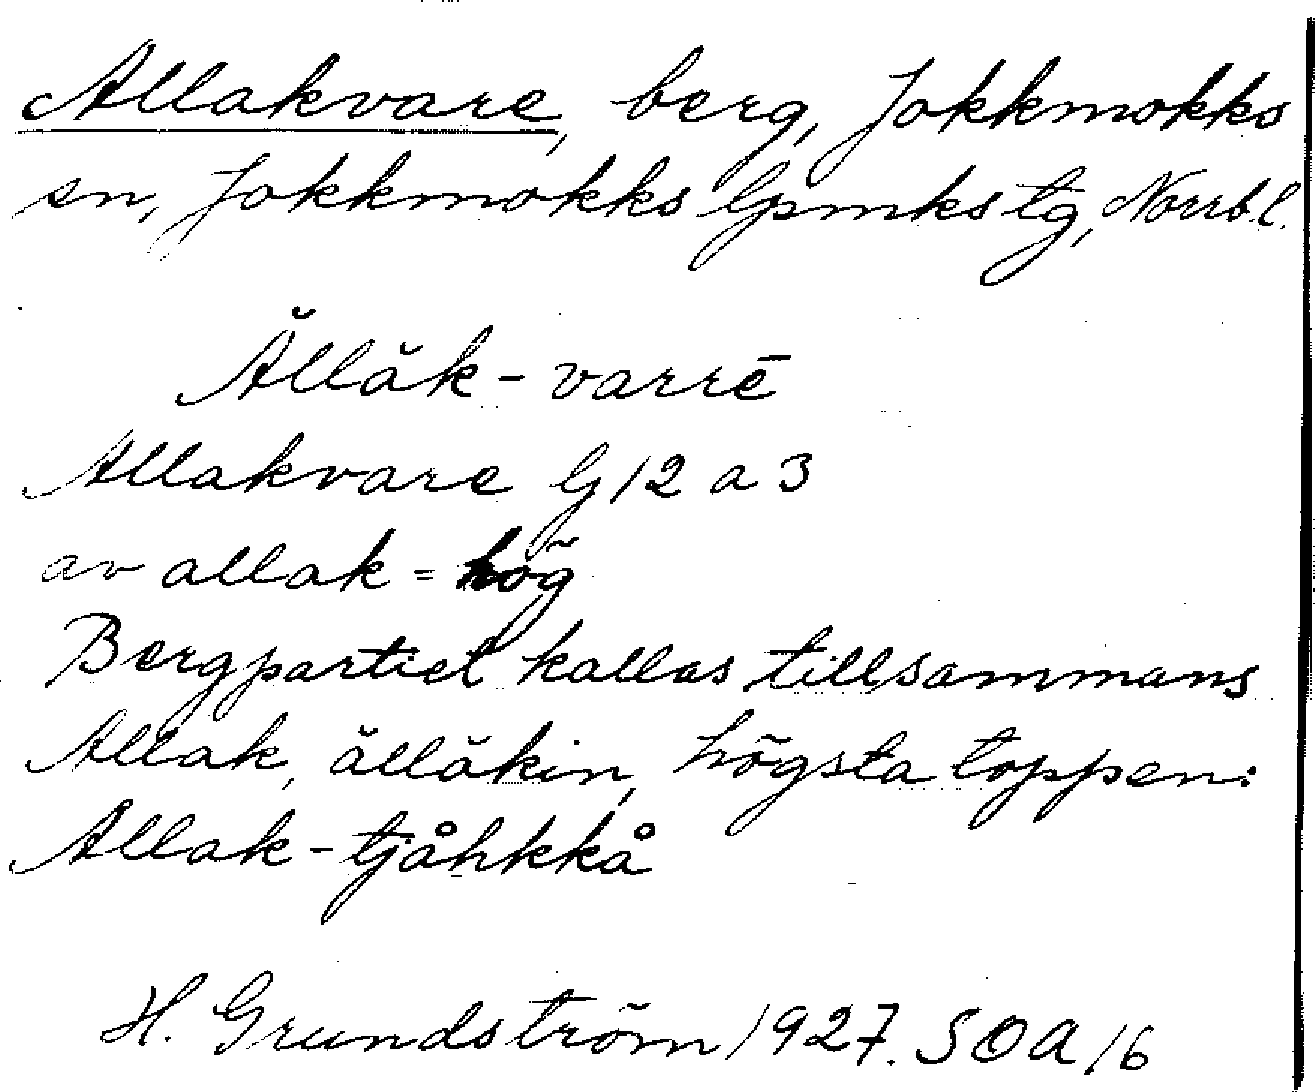 Allakvare, berg, Jokkmokks
sn, Jokkmokks lpmks tg, Norrb.l.
Ăllăk-varrē
Allakvare G 12 a 3
av allak = hög
Bergpartiet kallas tillsammans
Allak, ăllăkin, högsta toppen:
Allak-tjåhkkå
H. Grundström 1927. SOA 16